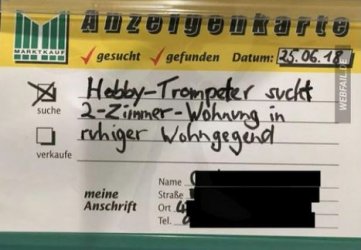 Anzeigenkarte
MARKTKAUF
✓gesucht ✓gefunden Datum: 25.06.18
WEBFAIL.DE
suche
Hobby-Trompeter sucht
2-Zimmer-Wohnung in
ruhiger Wohngegend
verkaufe
meine
Anschrift
Name
Straße
Ort
Tel.